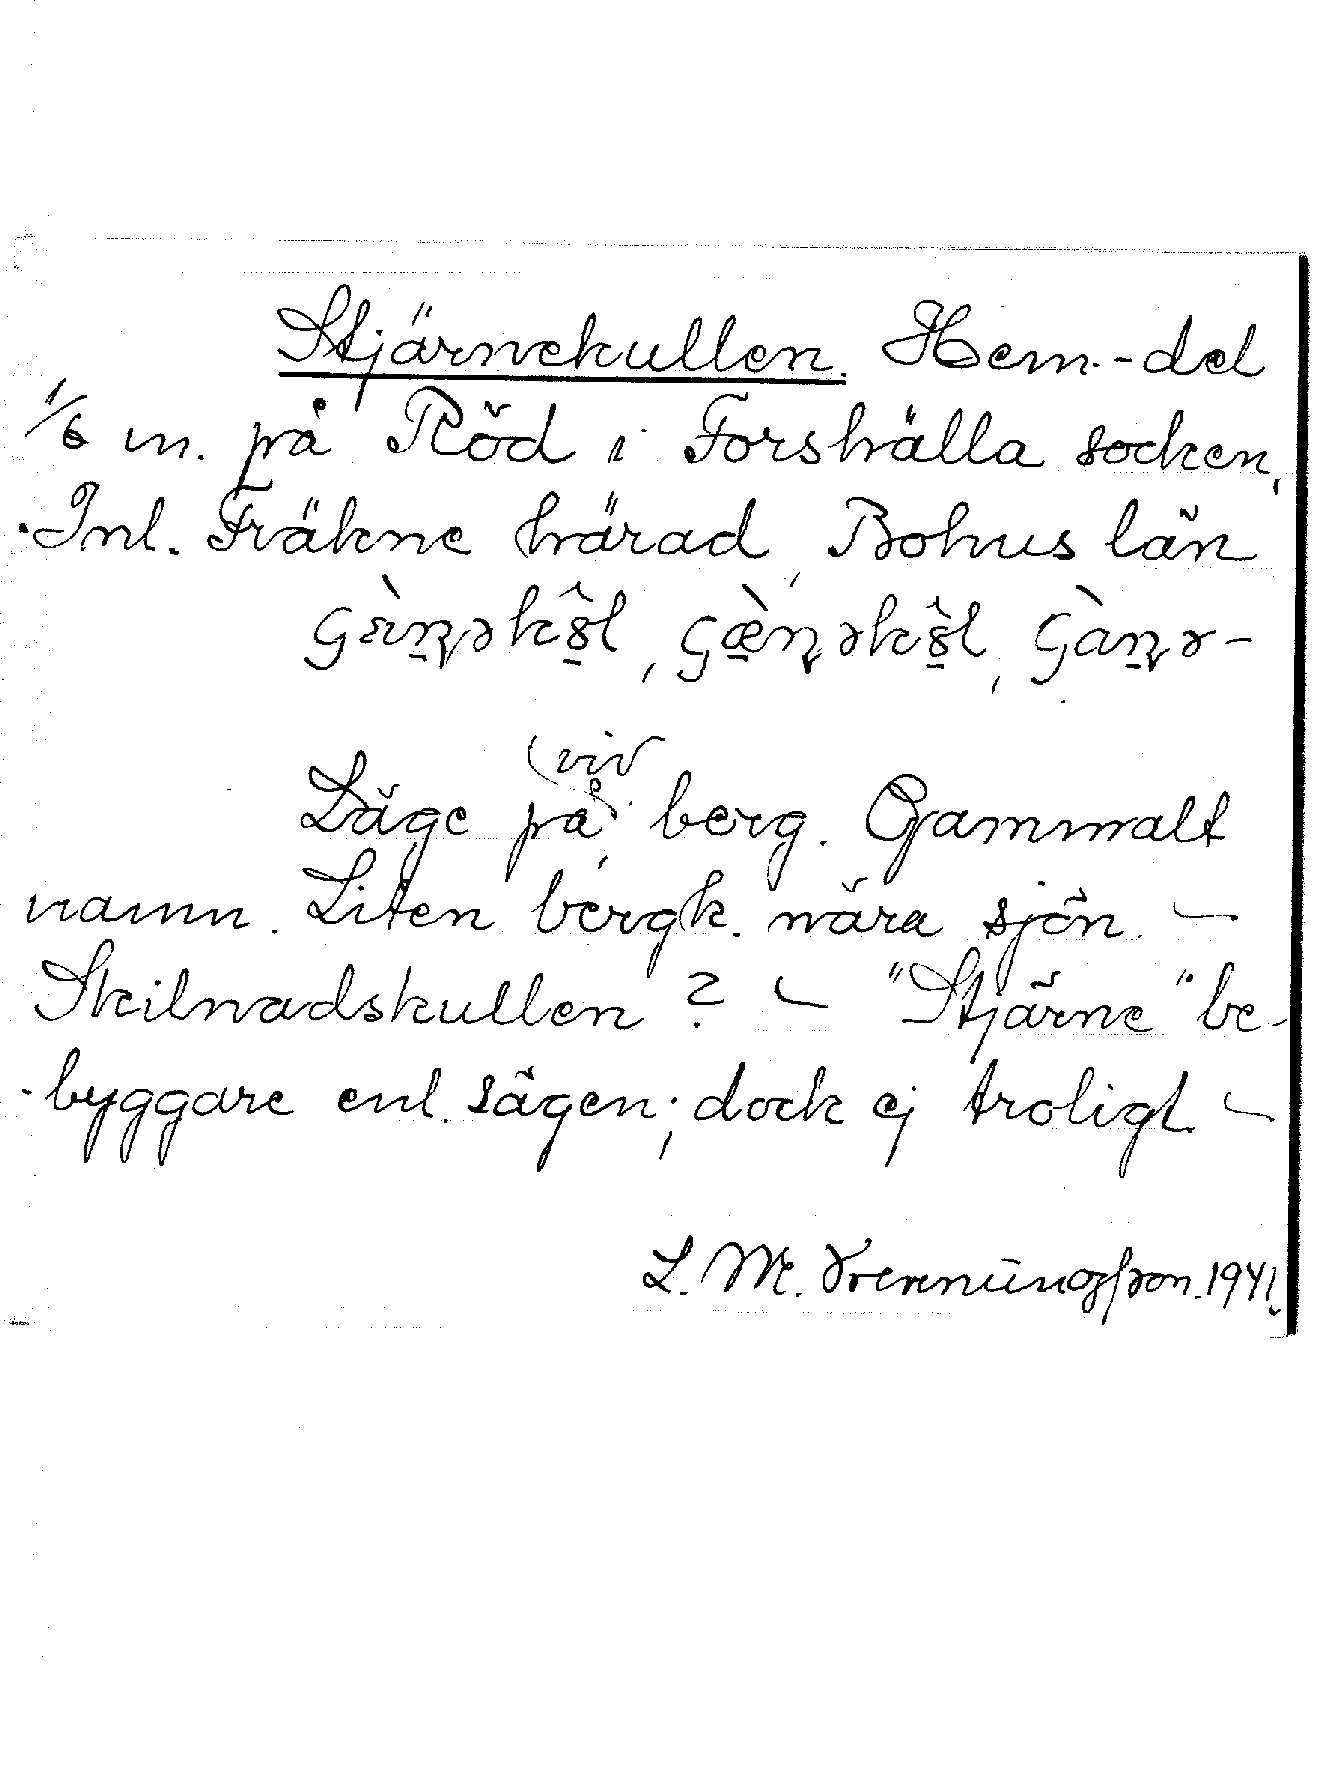 Stjärnekullen. Hem.-del
1/6 m. på Röd i Forshälla socken,
Inl. Fräkne härad, Bohus län
Läge på (vid) berg. Gammalt
namn. Liten bergk. nära sjön. –
Skilnadskullen? – "Stjärne" be-
byggare enl. sägen; dock ej troligt –
L. M. 1941.